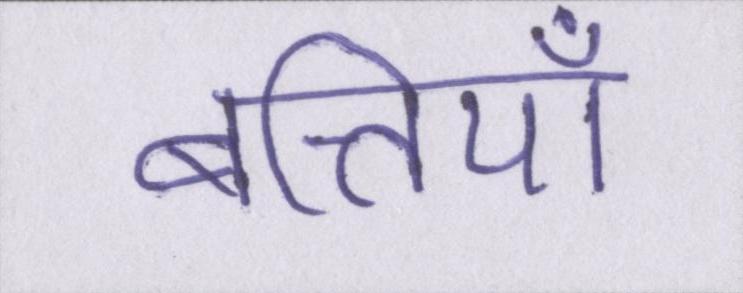 बत्तियाँ